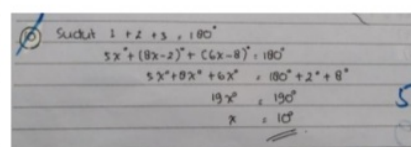 Sudut 1 + 2 + 3 = 180°
5x° + (8x-2)° + (6x-8)° = 180°
5x° + 8x° + 6x° = 180° + 2° + 8°
19x° = 190°
x = 10°
5